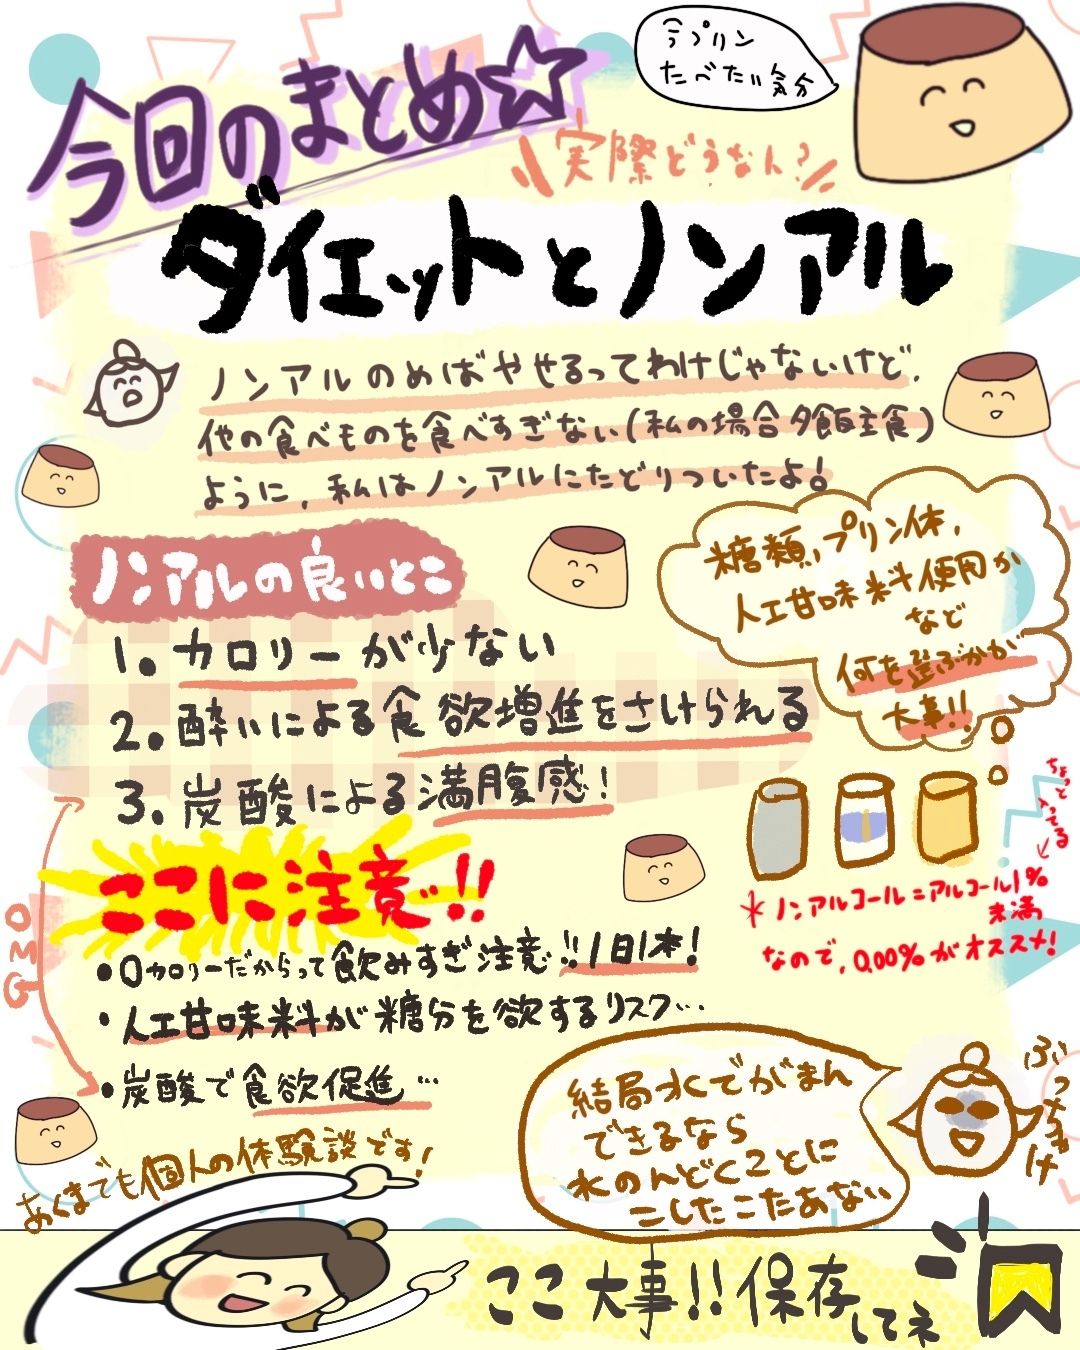 今回のまとめ☆
うプリン
たべたい気分
\\実際どうなん?//
ダイエットとノンアル
ノンアルのめばやせるってわけじゃないけど、
他の食べものを食べすぎない(私の場合夕飯主食)
ように、私はノンアルにたどりついたよ!
ノンアルの良いとこ
1. カロリーが少ない
2. 酔いによる食欲増進をさけられる
3. 炭酸による満腹感!
糖類、プリン体、
人工甘味料使用か
など
何を選ぶかが
大事!!
ちょっと
入ってる
*ノンアルコール=アルコール1%
未満
なので、0.00%がオススメ!
ここに注意!!
・0カロリーだからって飲みすぎ注意!!1日1本!
・人工甘味料が糖分を欲するリスク…
・炭酸で食欲促進…
あくまでも個人の体験談です!
結局水でがまん
できるなら
水のんどくことに
こしたこたあない
ぶっちゃけ
ここ大事!!保存してネ